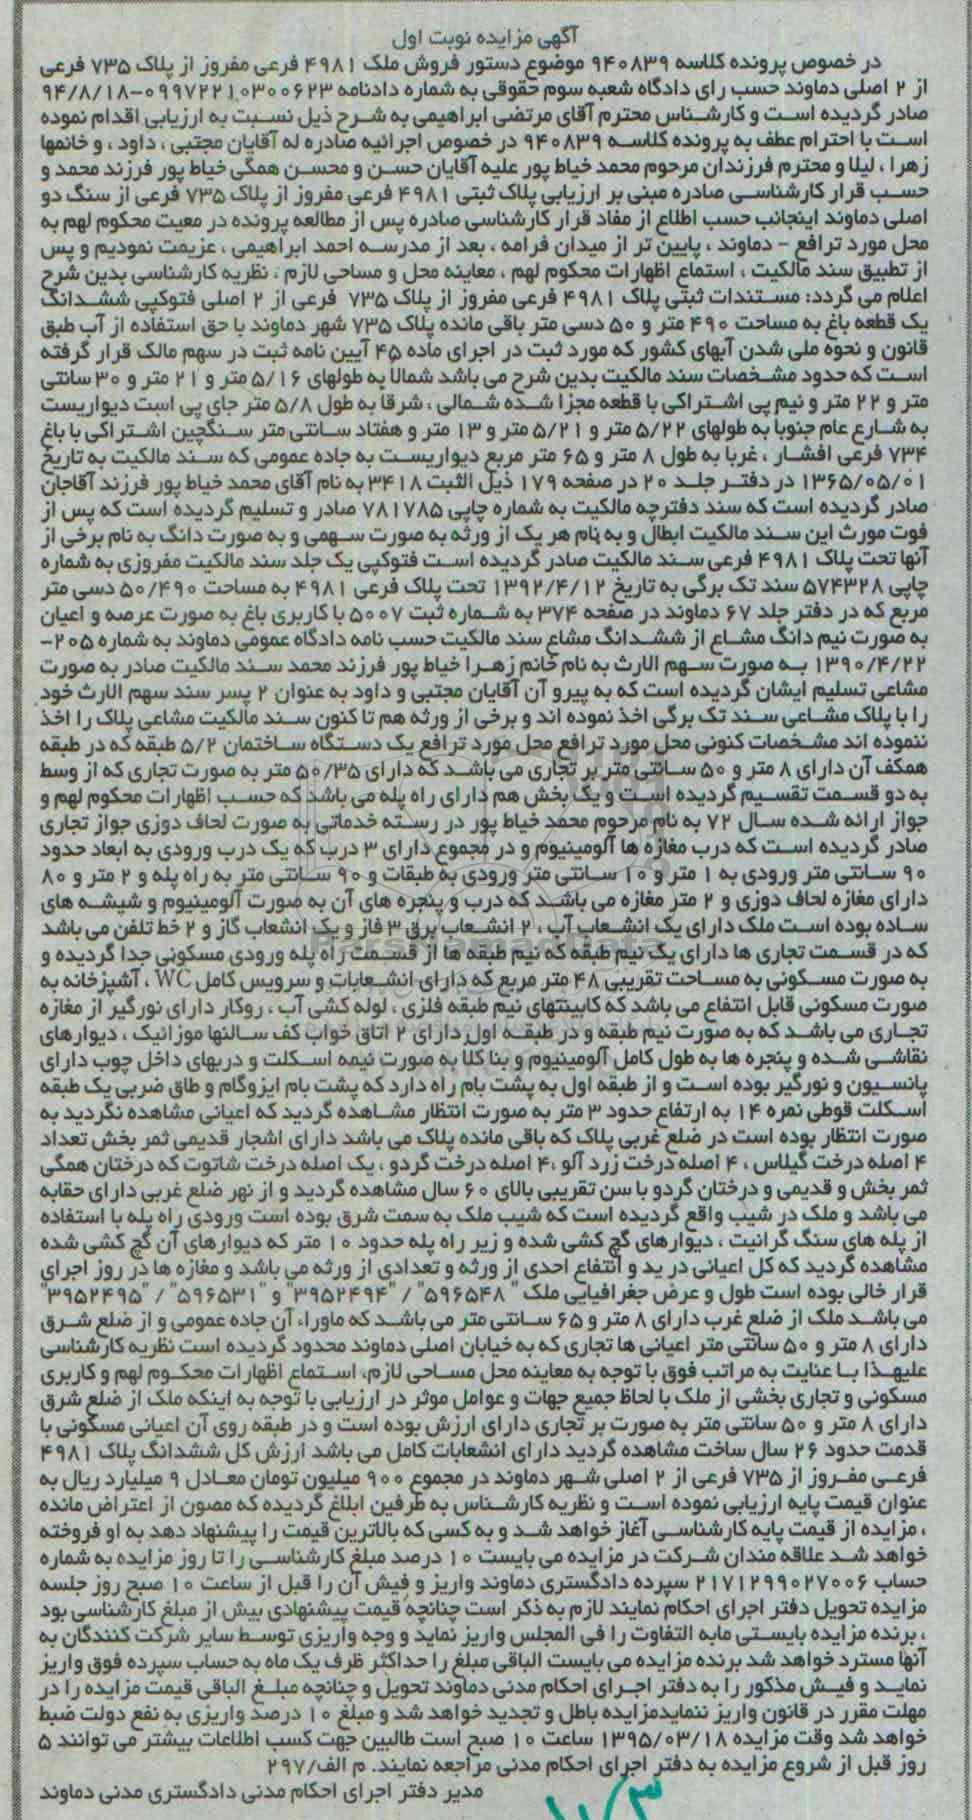 آگهی مزایده نوبت اول
در خصوص پرونده کلاسه ۹۴۰۸۳۹ موضوع دستور فروش ملک ۴۹۸۱ فرعی مفروز از پلاک ۷۳۵ فرعی
از ۲ اصلی دماوند حسب رای دادگاه شعبه سوم حقوقی به شماره دادنامه ۰۹۹۷۲۲۱۰۳۰۰۶۲۳-۹۴/۸/۱۸
صادر گردیده است و کارشناس محترم آقای مرتضی ابراهیمی به شرح ذیل نسبت به ارزیابی اقدام نموده
است با احترام عطف به پرونده کلاسه ۹۴۰۸۳۹ در خصوص اجرائیه صادره له آقایان مجتبی ، داود ، و خانمها
زهرا ، لیلا و محترم فرزندان مرحوم محمد خیاط پور علیه آقایان حسن و محسن همگی خیاط پور فرزند محمد و
حسب قرار کارشناسی صادره مبنی بر ارزیابی پلاک ثبتی ۴۹۸۱ فرعی مفروز از پلاک ۷۳۵ فرعی از سنگ دو
اصلی دماوند اینجانب حسب اطلاع از مفاد قرار کارشناسی صادره پس از مطالعه پرونده در معیت محکوم لهم به
محل مورد ترافع - دماوند ، پایین تر از میدان فرامه ، بعد از مدرسه احمد ابراهیمی ، عزیمت نمودیم و پس
از تطبیق سند مالکیت ، استماع اظهارات محکوم لهم ، معاینه محل و مساحی لازم ، نظریه کارشناسی بدین شرح
اعلام می گردد: مستندات ثبتی پلاک ۴۹۸۱ فرعی مفروز از پلاک ۷۳۵ فرعی از ۲ اصلی فتوکپی ششدانگ
یک قطعه باغ به مساحت ۴۹۰ متر و ۵۰ دسی متر باقی مانده پلاک ۷۳۵ شهر دماوند با حق استفاده از آب طبق
قانون و نحوه ملی شدن آبهای کشور که مورد ثبت در اجرای ماده ۴۵ آیین نامه ثبت در سهم مالک قرار گرفته
است که حدود مشخصات سند مالکیت بدین شرح می باشد شمالا به طولهای ۵/۱۶ متر و ۲۱ متر و ۳۰ سانتی
متر و ۲۲ متر و نیم پی اشتراکی با قطعه مجزا شده شمالی ، شرقا به طول ۵/۸ متر جای پی است دیواریست
به شارع عام جنوبا به طولهای ۵/۲۲ متر و ۵/۲۱ متر و ۱۳ متر و هفتاد سانتی متر سنگچین اشتراکی با باغ
۷۳۴ فرعی افشار ، غربا به طول ۸ متر و ۶۵ متر مربع دیواریست به جاده عمومی که سند مالکیت به تاریخ
۱۳۶۵/۰۵/۰۱ در دفتر جلد ۲۰ در صفحه ۱۷۹ ذیل الثبت ۳۴۱۸ به نام آقای محمد خیاط پور فرزند آقاجان
صادر گردیده است که سند دفترچه مالکیت به شماره چاپی ۷۸۱۷۸۵ صادر و تسلیم گردیده است که پس از
فوت مورث این سند مالکیت ابطال و به نام هر یک از ورثه به صورت سهمی و به صورت دانگ به نام برخی از
آنها تحت پلاک ۴۹۸۱ فرعی سند مالکیت صادر گردیده است فتوکپی یک جلد سند مالکیت مفروزی به شماره
چاپی ۵۷۴۳۲۸ سند تک برگی به تاریخ ۱۳۹۲/۴/۱۲ تحت پلاک فرعی ۴۹۸۱ به مساحت ۵۰/۴۹۰ دسی متر
مربع که در دفتر جلد ۶۷ دماوند در صفحه ۳۷۴ به شماره ثبت ۵۰۰۷ با کاربری باغ به صورت عرصه و اعیان
به صورت نیم دانگ مشاع از ششدانگ مشاع سند مالکیت حسب نامه دادگاه عمومی دماوند به شماره ۲۰۵-
۱۳۹۰/۴/۲۲ به صورت سهم الارث به نام خانم زهرا خیاط پور فرزند محمد سند مالکیت صادر به صورت
مشاعی تسلیم ایشان گردیده است که به پیرو آن آقایان مجتبی و داود به عنوان ۲ پسر سند سهم الارث خود
را با پلاک مشاعی سند تک برگی اخذ نموده اند و برخی از ورثه هم تا کنون سند مالکیت مشاعی پلاک را اخذ
ننموده اند مشخصات کنونی محل مورد ترافع محل مورد ترافع یک دستگاه ساختمان ۵/۲ طبقه که در طبقه
همکف آن دارای ۸ متر و ۵۰ سانتی متر بر تجاری می باشد که دارای ۵۰/۳۵ متر به صورت تجاری که از وسط
به دو قسمت تقسیم گردیده است و یک بخش هم دارای راه پله می باشد که حسب اظهارات محکوم لهم و
جواز ارائه شده سال ۷۲ به نام مرحوم محمد خیاط پور در رسته خدماتی به صورت لحاف دوزی جواز تجاری
صادر گردیده است که درب مغازه ها آلومینیوم و در مجموع دارای ۳ درب که یک درب ورودی به ابعاد حدود
۹۰ سانتی متر ورودی به ۱ متر و ۱۰ سانتی متر ورودی به طبقات و ۹۰ سانتی متر به راه پله و ۲ متر و ۸۰
دارای مغازه لحاف دوزی و ۲ متر مغازه می باشد که درب و پنجره های آن به صورت آلومینیوم و شیشه های
ساده بوده است ملک دارای یک انشعاب آب ، ۲ انشعاب برق ۳ فاز و یک انشعاب گاز و ۲ خط تلفن می باشد
که در قسمت تجاری ها دارای یک نیم طبقه که نیم طبقه ها از قسمت راه پله ورودی مسکونی جدا گردیده و
به صورت مسکونی به مساحت تقریبی ۴۸ متر مربع که دارای انشعابات و سرویس کامل WC ، آشپزخانه به
صورت مسکونی قابل انتفاع می باشد که کابینتهای نیم طبقه فلزی ، لوله کشی آب ، روکار دارای نورگیر از مغازه
تجاری می باشد که به صورت نیم طبقه و در طبقه اول دارای ۲ اتاق خواب کف سالنها موزائیک ، دیوارهای
نقاشی شده و پنجره ها به طول کامل آلومینیوم و بنا کلا به صورت نیمه اسکلت و دربهای داخل چوب دارای
پانسیون و نورگیر بوده است و از طبقه اول به پشت بام راه دارد که پشت بام ایزوگام و طاق ضربی یک طبقه
اسکلت قوطی نمره ۱۴ به ارتفاع حدود ۳ متر به صورت انتظار مشاهده گردید که اعیانی مشاهده نگردید به
صورت انتظار بوده است در ضلع غربی پلاک که باقی مانده پلاک می باشد دارای اشجار قدیمی ثمر بخش تعداد
۴ اصله درخت گیلاس ، ۴ اصله درخت زرد آلو ،۴ اصله درخت گردو ، یک اصله درخت شاتوت که درختان همگی
ثمر بخش و قدیمی و درختان گردو با سن تقریبی بالای ۶۰ سال مشاهده گردید و از نهر ضلع غربی دارای حقابه
می باشد و ملک در شیب واقع گردیده است که شیب ملک به سمت شرق بوده است ورودی راه پله با استفاده
از پله های سنگ گرانیت ، دیوارهای گچ کشی شده و زیر راه پله حدود ۱۰ متر که دیوارهای آن گچ کشی شده
مشاهده گردید که کل اعیانی در ید و انتفاع احدی از ورثه و تعدادی از ورثه می باشد و مغازه ها در روز اجرای
قرار خالی بوده است طول و عرض جغرافیایی ملک " ۵۹۶۵۴۸" / "۳۹۵۲۴۹۴" و "۵۹۶۵۳۱" / "۳۹۵۲۴۹۵"
می باشد ملک از ضلع غرب دارای ۸ متر و ۶۵ سانتی متر می باشد که ماوراء آن جاده عمومی و از ضلع شرق
دارای ۸ متر و ۵۰ سانتی متر اعیانی ها تجاری که به خیابان اصلی دماوند محدود گردیده است نظریه کارشناسی
علیهذا با عنایت به مراتب فوق با توجه به معاینه محل مساحی لازم، استماع اظهارات محکوم لهم و کاربری
مسکونی و تجاری بخشی از ملک با لحاظ جمیع جهات و عوامل موثر در ارزیابی با توجه به اینکه ملک از ضلع شرق
دارای ۸ متر و ۵۰ سانتی متر به صورت بر تجاری دارای ارزش بوده است و در طبقه روی آن اعیانی مسکونی با
قدمت حدود ۲۶ سال ساخت مشاهده گردید دارای انشعابات کامل می باشد ارزش کل ششدانگ پلاک ۴۹۸۱
فرعی مفروز از ۷۳۵ فرعی از ۲ اصلی شهر دماوند در مجموع ۹۰۰ میلیون تومان معادل ۹ میلیارد ریال به
عنوان قیمت پایه ارزیابی نموده است و نظریه کارشناس به طرفین ابلاغ گردیده که مصون از اعتراض مانده
، مزایده از قیمت پایه کارشناسی آغاز خواهد شد و به کسی که بالاترین قیمت را پیشنهاد دهد به او فروخته
خواهد شد علاقه مندان شرکت در مزایده می بایست ۱۰ درصد مبلغ کارشناسی را تا روز مزایده به شماره
حساب ۲۱۷۱۲۹۹۰۲۷۰۰۶ سپرده دادگستری دماوند واریز و فیش آن را قبل از ساعت ۱۰ صبح روز جلسه
مزایده تحویل دفتر اجرای احکام نمایند لازم به ذکر است چنانچه قیمت پیشنهادی بیش از مبلغ کارشناسی بود
، برنده مزایده بایستی مابه التفاوت را فی المجلس واریز نماید و وجه واریزی توسط سایر شرکت کنندگان به
آنها مسترد خواهد شد برنده مزایده می بایست الباقی مبلغ را حداکثر ظرف یک ماه به حساب سپرده فوق واریز
نماید و فیش مذکور را به دفتر اجرای احکام مدنی دماوند تحویل و چنانچه مبلغ الباقی قیمت مزایده را در
مهلت مقرر در قانون واریز ننماید مزایده باطل و تجدید خواهد شد و مبلغ ۱۰ درصد واریزی به نفع دولت ضبط
خواهد شد وقت مزایده ۱۳۹۵/۰۳/۱۸ ساعت ۱۰ صبح است طالبین جهت کسب اطلاعات بیشتر می توانند ۵
روز قبل از شروع مزایده به دفتر اجرای احکام مدنی مراجعه نمایند. م الف/۲۹۷
مدیر دفتر اجرای احکام مدنی دادگستری مدنی دماوند